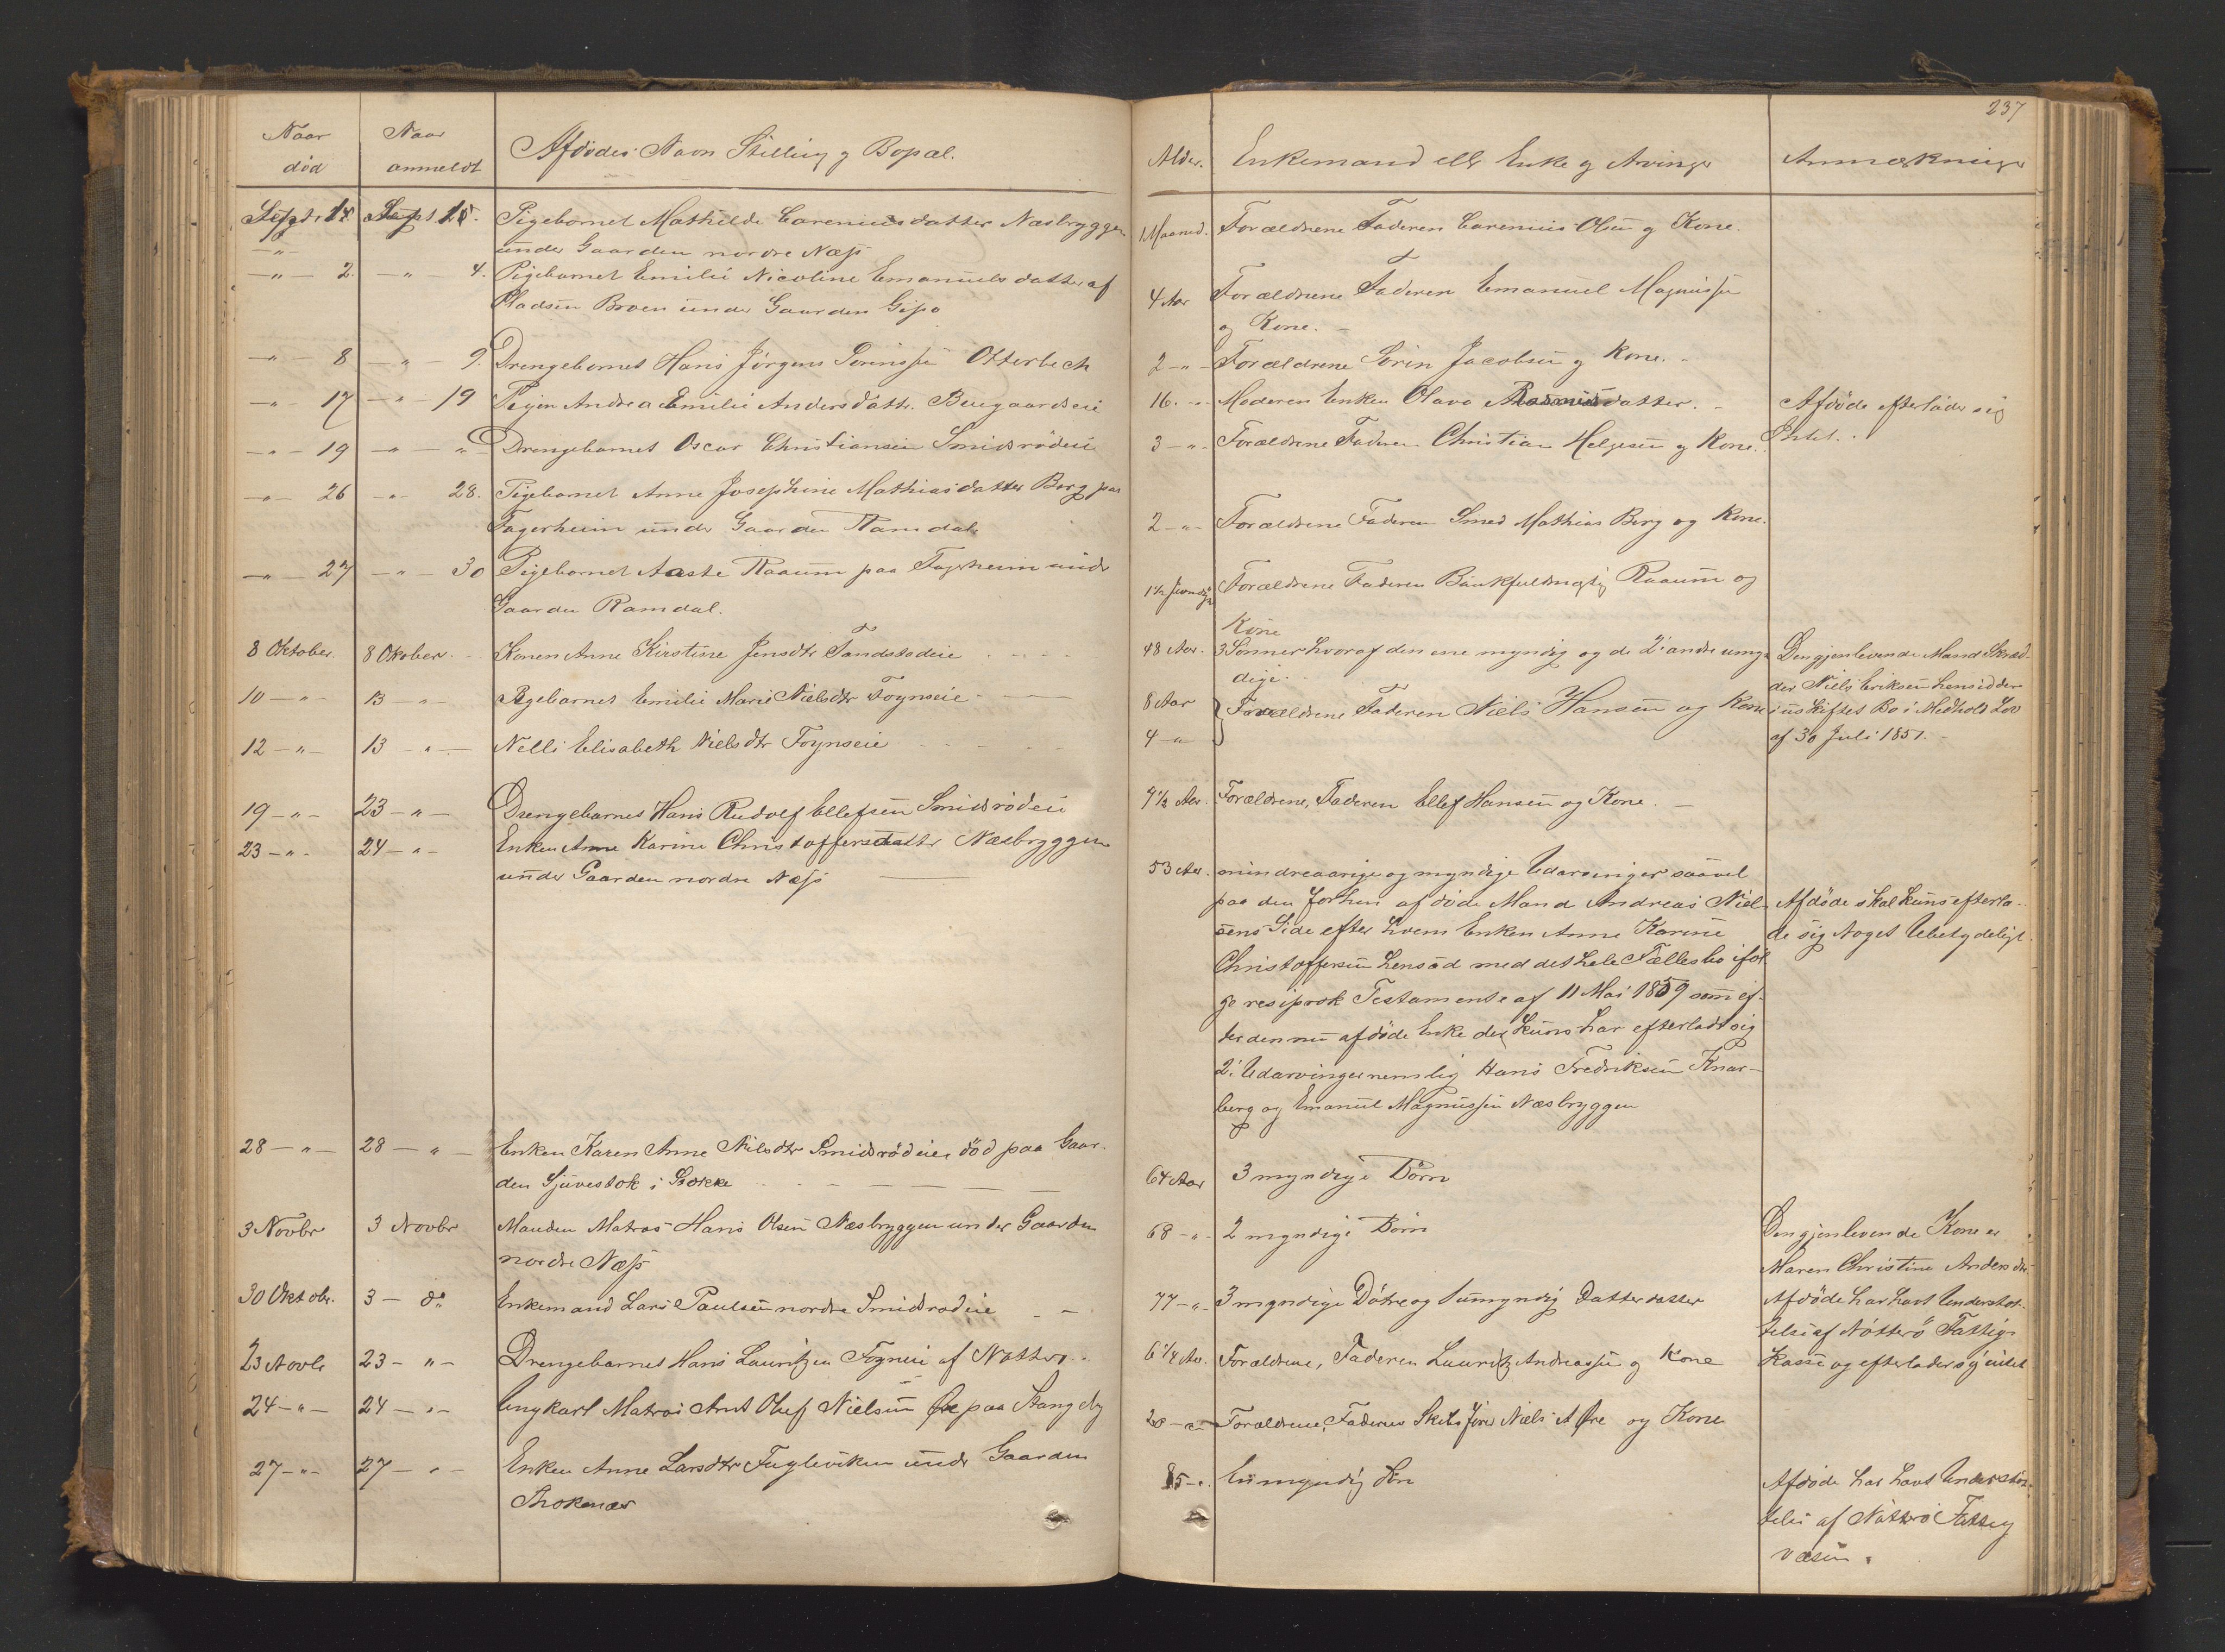 237
Naar død
Naar anmeldt
Afdødes Navn Stilling og Bopæl.
Alder.
Enkemand eller Enke og Arvinger
Anmærkninger
Sept. 14. Sept 15. Pigebarnet Mathilde Careniusdatter Næsbryggen
under Gaarden nordre Næss
1 Maaned. Forældrene Faderen Carenius Olsen og Kone.
— " — 2. — " — 4. Pigebarnet Emilie Nicoline Emanuelsdatter af
Pladsen Broen under Gaarden Gipø
4 Aar Forældrene Faderen Emanuel Magnussen
og Kone. —
— " — 8 — " — 9. Drengebarnet Hans Jørgen Sørinssen Otterbech
2 — " — Forældrene Sørin Jacobsen og Kone. -
— " — 17 — " — 19 Pigen Andrea Emilie Andersdattr. Buugaardseie
16. — " Moderen Enken Olava Rasmusdatter. - Afdøde efterlader sig
Intet.
— " — 19 — " — " — Drengebarnet Oscar Christiansen Smidsrødeie
3 — " — Forældrene Faderen Christian Helgesen og Kone.
— " — 26 — " — 28. Pigebarnet Anne Josephine Mathiasdatter Berg paa
Fagerheim under Gaarden Ramdal
2 — " — Forældrene Faderen Smed Mathias Berg og Kone.
— " — 27 — " — 30 Pigebarnet Aaste Raaum paa Fagerheim under
Gaarden Ramdal.
1½ Forældrene Faderen Bankfuldmægtig Raaum og
Kone
8 Oktober. 8 Oktober. Konen Anne Kirstine Jensdtr Tandstadeie
48 Aar. 3 Sønner hvoraf den ene myndig og de 2 andre umyn
dige.
Den gjenlevende Mand Skræd-
der Niels Eriksen hensidder
i uskiftet Bo i Medhold Lov
af 30 Juli 1851. -
10 — " 13 — " — Pigebarnet Emilie Marie Nielsdtr Foynseie
8 Aar Forældrene Faderen Niels Hansen og Kone
12 — " — 13 — " — Nelli Elisabeth Nielsdtr Foynseie
4 — "
19 — " — 23 — " — Drengebarnet Hans Rudolf Ellefsen Smidsrødeie
4½ Aar. Forældrene, Faderen Ellef Hansen og Kone. —
23 — " — 24 — " — Enken Anne Karine Christoffersdatter Næsbryggen
under Gaarden nordre Næss
53 Aar. mindreaarige og myndige Udarvinger saavel
paa den forhen afdøde Mand Andreas Niel-
sens Side efter hvem Enken Anne Karine
Christoffersen hensad med det hele Fællesbo iføl-
ge resiprok Testamente af 11 Mai 1859 som ef-
ter den nu afdøde Enke der kuns har efterladt sig
2 Udarvinger nemlig Hans Fredriksen Knar-
berg og Emanuel Magnussen Næsbryggen
Afdøde skal kuns efterla-
de sig Noget Ubetydeligt.
28 — " — 28 — " — Enken Karen Anne Nilsdtr Smidsrødeie, død paa Gaar-
den Sjuvestok i Stokke
64 Aar 3 myndige Børn
3 Novbr 3 Novbr Manden Matros Hans Olsen Næsbryggen under Gaarden
nordre Næss
68 — " — 2 myndige Børn
Den gjenlevende Kone er
Maren Christine Andersdtr
30 Oktobr. 3 — do Enkemand Lars Paulsen nordre Smidsrødeie
77 — " — 3 myndige Døtre og 1 umyndig Datterdatter
Afdøde har havt Understøt-
telse af Nøtterø Fattig-
kasse og efterlader sig intet
23 Novbr 23 — " — Drengebarnet Hans Lauritzen Foynseie af Nøtterø.
6¼ Aar. Forældrene, Faderen Lauritz Andreassen og Kone
24 — " — 24 — " — Ungkarl Matros Arnt Oluf Nielsen Øre paa Stangeby
20 — " — Forældrene, Faderen Skibsfører Niels A Øre og Kone
27 — " — 27 — " — Enken Anne Larsdtr Fugleviken under Gaarden
Thokenæs
85 — " En myndig Søn
Afdøde har havt Understøt-
telse af Nøtterø Fattig
væsen.